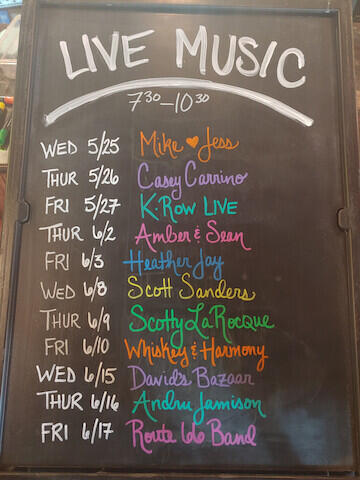 LIVE MUSIC
7:30-10:30
WED 5/25 Mike ♥ Jess
THUR 5/26 Casey Carrino
FRI 5/27 K-Row LIVE
THUR 6/2 Amber & Sean
FRI 6/3 Heather Jay
WED 6/8 Scott Sanders
THUR 6/9 Scotty LaRocque
FRI 6/10 Whiskey & Harmony
WED 6/15 David's Bazaar
THUR 6/16 Andru Jamison
FRI 6/17 Route 66 Band